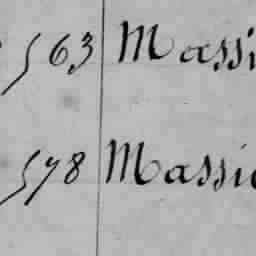 563 Massi
578 Massi